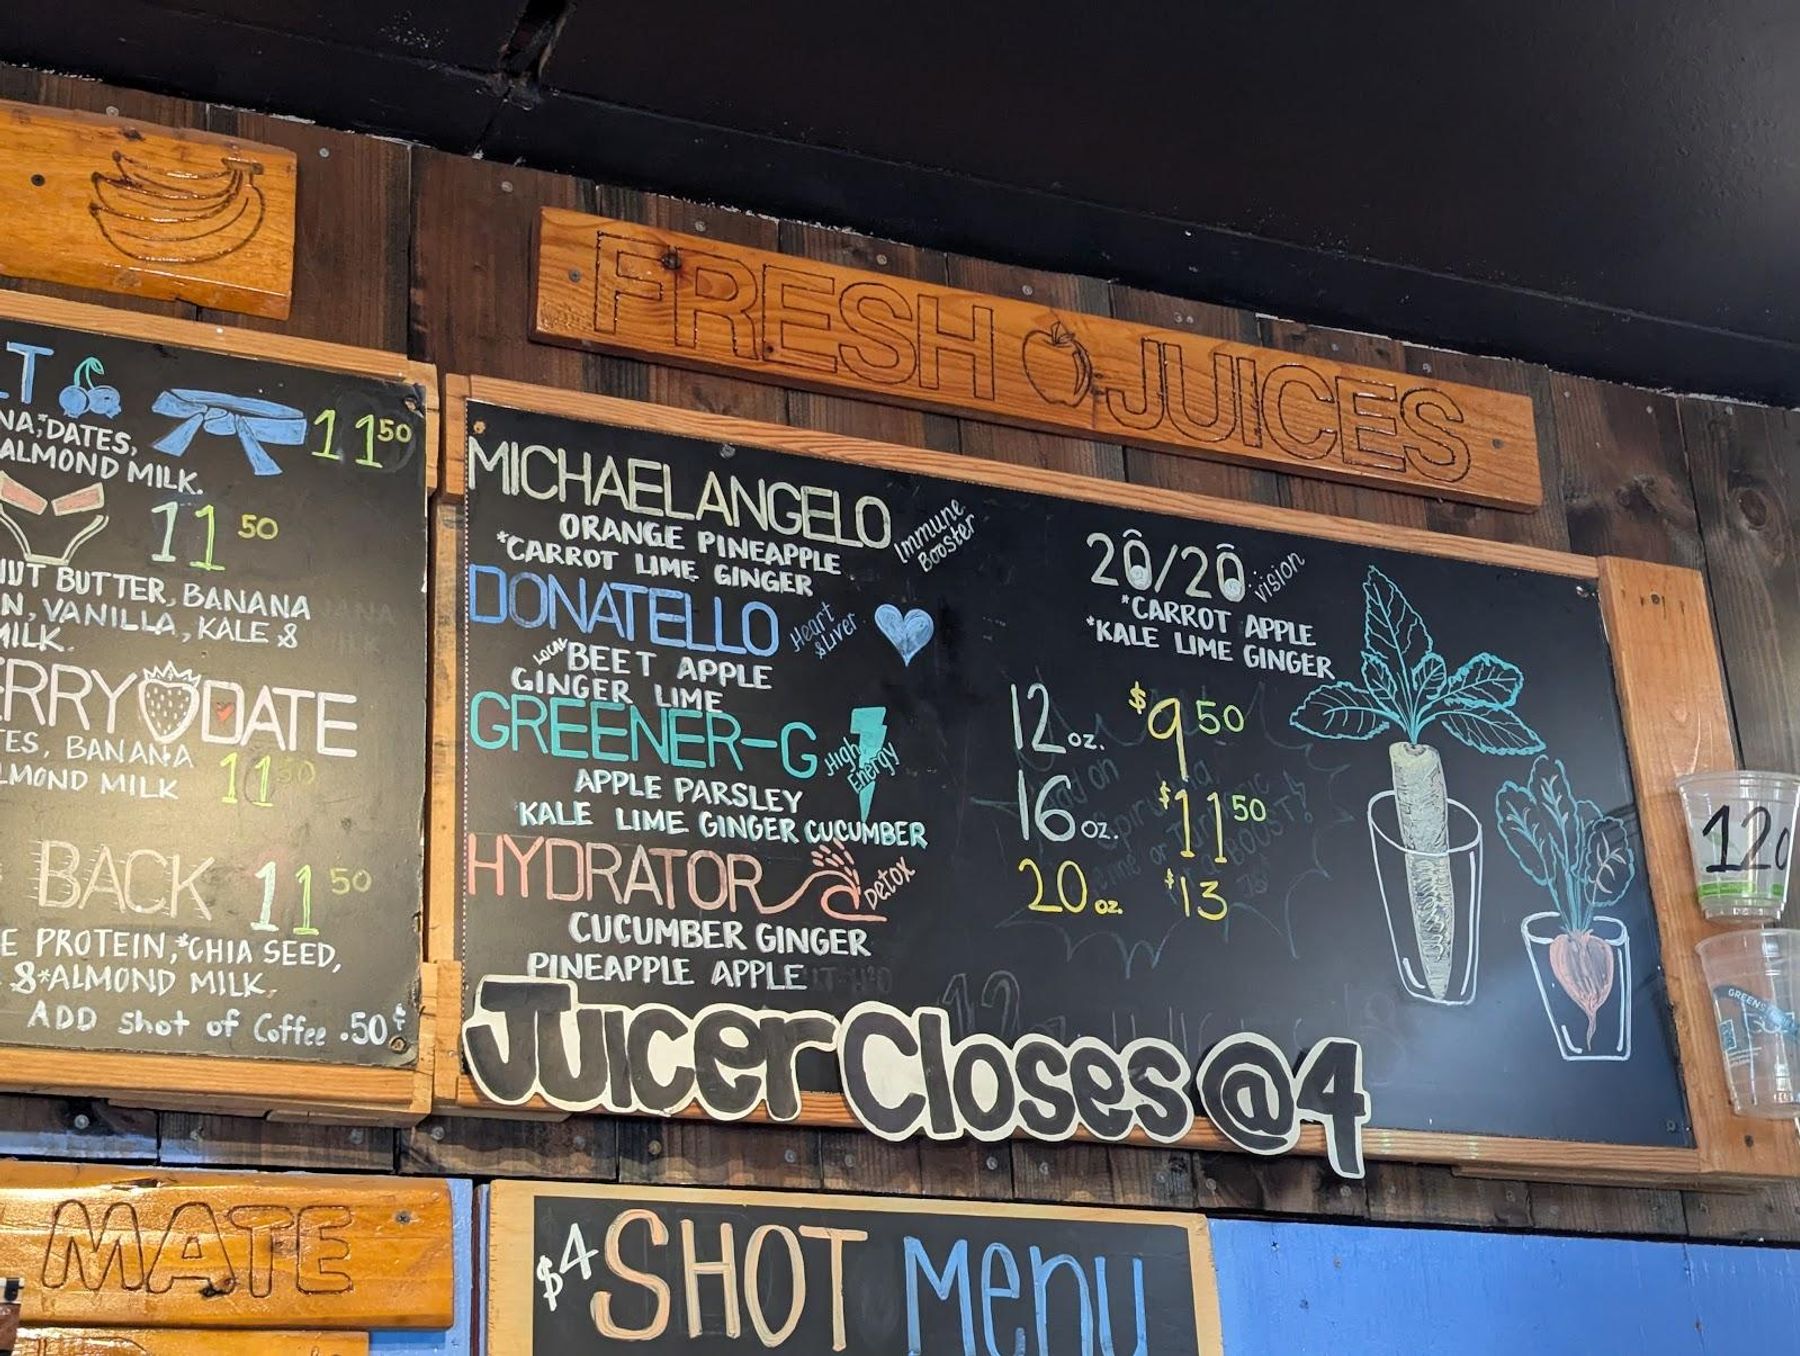 11 50
DATES,
ALMOND MILK.
11 50
BUTTER, BANANA
VANILLA, KALE &
MILK.
DATE
BANANA
MILK 11 50
BACK 11 50
PROTEIN, *CHIA SEED,
& *ALMOND MILK.
ADD shot of Coffee .50¢
MATE
FRESH JUICES
MICHAELANGELO
Immune
Booster
ORANGE PINEAPPLE
*CARROT LIME GINGER
DONATELLO
Heart
& Liver
LOCAL BEET APPLE
GINGER LIME
GREENER-G
High
Energy
APPLE PARSLEY
KALE LIME GINGER CUCUMBER
HYDRATOR
Detox
CUCUMBER GINGER
PINEAPPLE APPLE
20/20 vision
*CARROT APPLE
*KALE LIME GINGER
12 oz. $9 50
16 oz. $11 50
20 oz. $13
JUICER CLOSES @ 4
$4 SHOT MENU